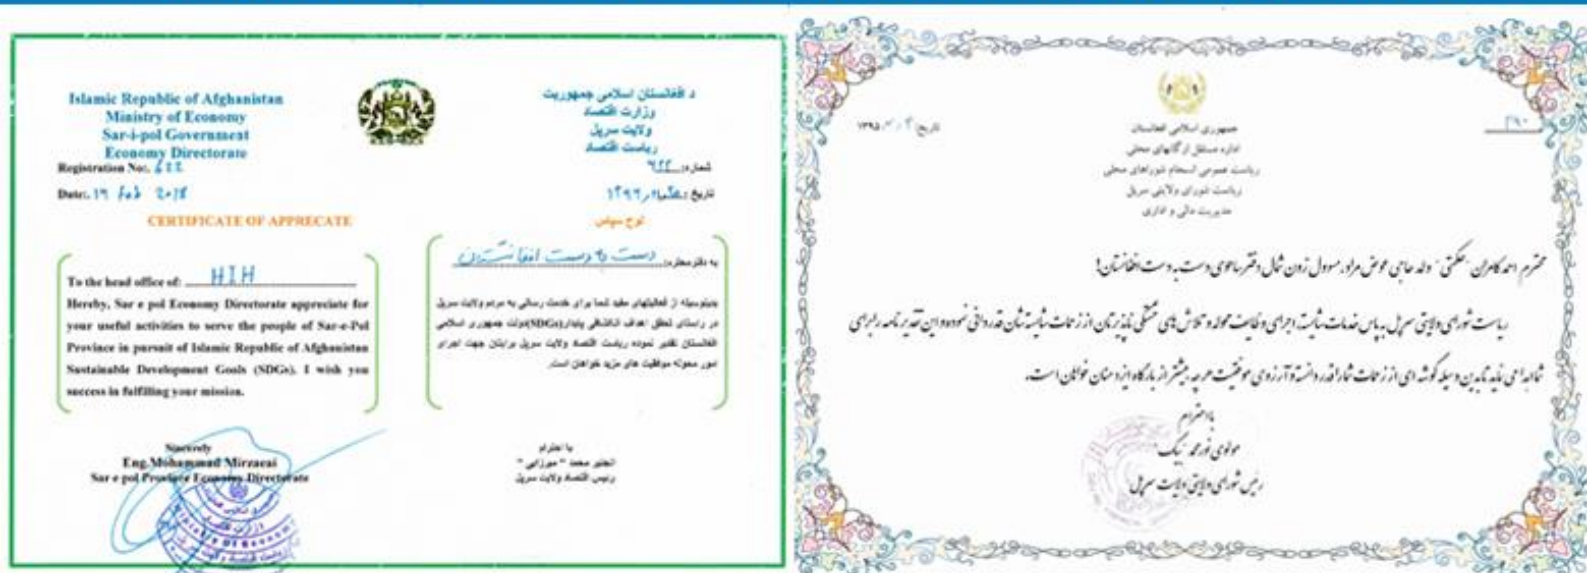 Islamic Republic of Afghanistan
Ministry of Economy
Sar-i-pol Government
Economy Directorate
Registration No:. 622
Date:. 19 feb 2018
CERTIFICATE OF APPRECATE
To the head office of: HIH
Hereby, Sar e pol Economy Directorate appreciate for
your useful activities to serve the people of Sar-e-Pol
Province in pursuit of Islamic Republic of Afghanistan
Sustainable Development Goals (SDGs). I wish you
success in fulfilling your mission.
Sincerely
Eng.Mohammad Mirzaeai
Sar e pol Province Economy Directorate
د افغانستان اسلامی جمهوریت
وزارت اقتصاد
ولایت سرپل
ریاست اقتصاد
شماره: ۶۲۲
تاریخ
لوح سپاس
به دفتر محترم: دست به دست افغانستان
بدینوسیله از فعالیتهای مفید شما برای خدمت رسانی به مردم ولایت سرپل
در راستای تحقق اهداف انکشافی پایدار(SDGs)دولت جمهوری اسلامی
افغانستان تقدیر نموده ریاست اقتصاد ولایت سرپل برایتان جهت اجرای
امور محوله موفقیت های مزید خواهان است.
با احترام
انجنیر محمد " میرزایی "
رئیس اقتصاد ولایت سرپل
تاریخ: ۱۳۹۵
جمهوری اسلامی افغانستان
اداره مستقل ارگانهای محلی
ریاست عمومی انسجام شوراهای محلی
ریاست شورای ولایتی سرپل
مدیریت مالی و اداری
محترم احمد کامران "حکمتی" ولد حاجی عوض مراد، مسوول زون شمال دفتر ساحوی دست به دست افغانستان!
ریاست شورای ولایتی سرپل به پاس خدمات شایسته، اجرای وظایف محوله و تلاش های خستگی ناپذیرتان از زحمات شایسته شان قدردانی نموده و این تقدیرنامه را برای
شما اهدا می نماید تا بدین وسیله گوشه ای از زحمات شما را قدر دانسته و آرزوی موفقیت هرچه بیشتر از بارگاه ایزد منان خواهان است.
بااحترام
مولوی نورمحمد "بیگ"
رئیس شورای ولایتی ولایت سرپل